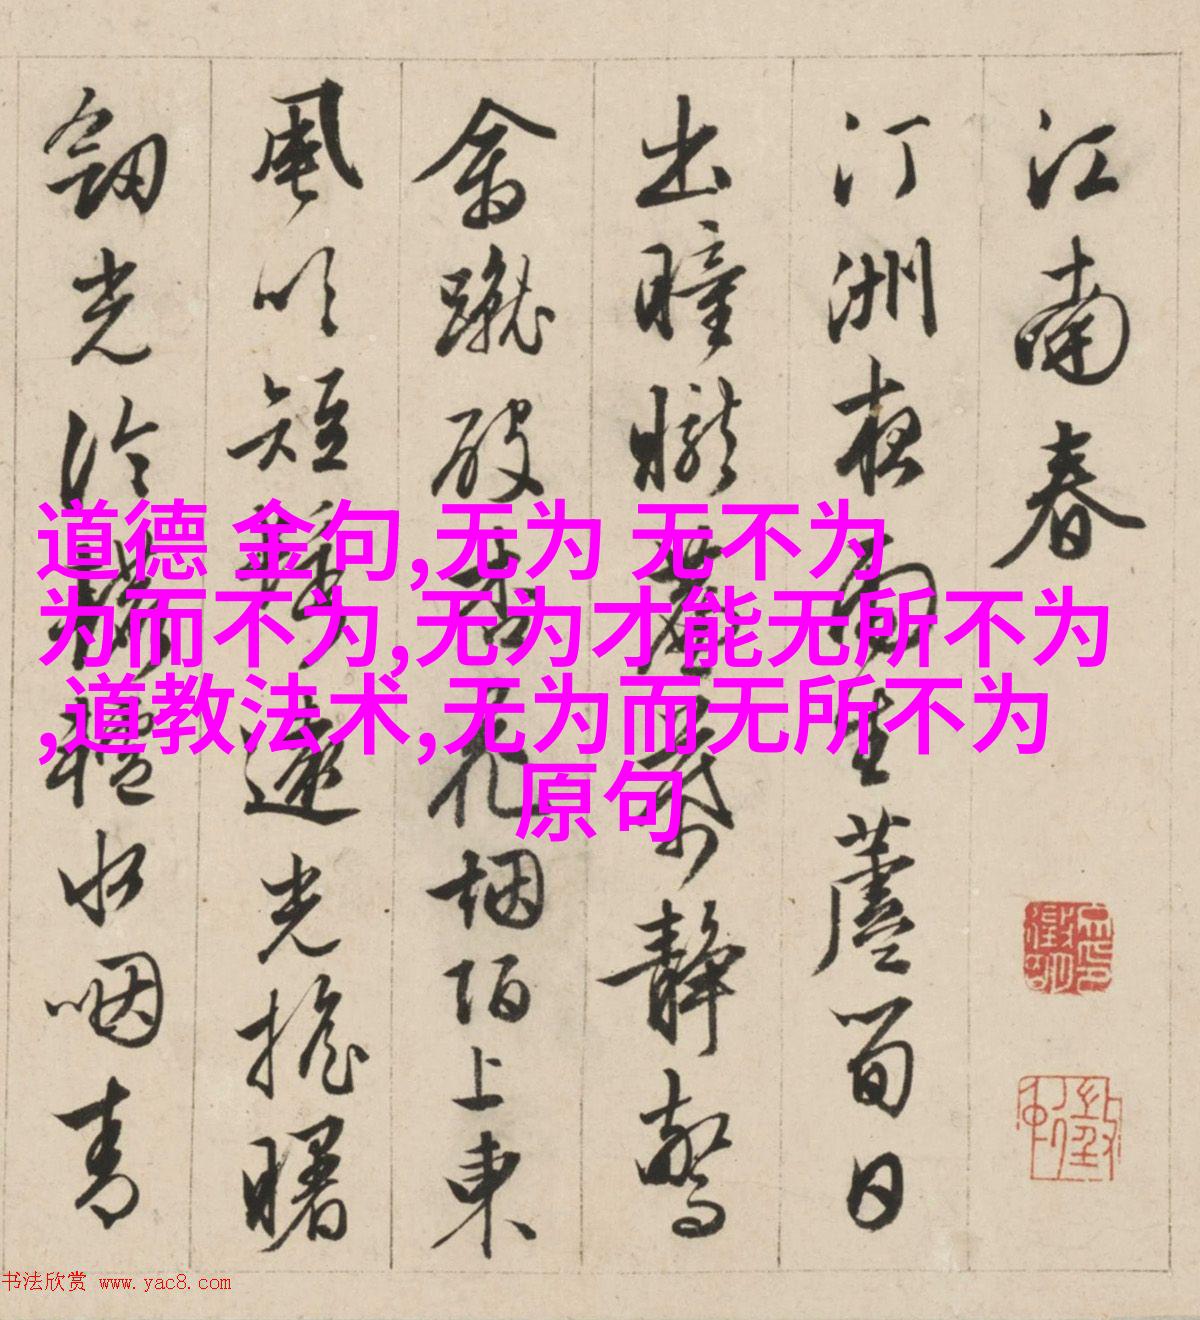 江南春
汀洲夜雨生蘆笋日
出曈曨簾幕靜驚
禽蹴破杏花烟陌上東
風吹短光搖曙
劒光冷水咽青
道德 金句,无为 无不为
为而不为,无为才能无所不为
,道教法术,无为而无所不为
原句
书法欣赏 www.yac8.com